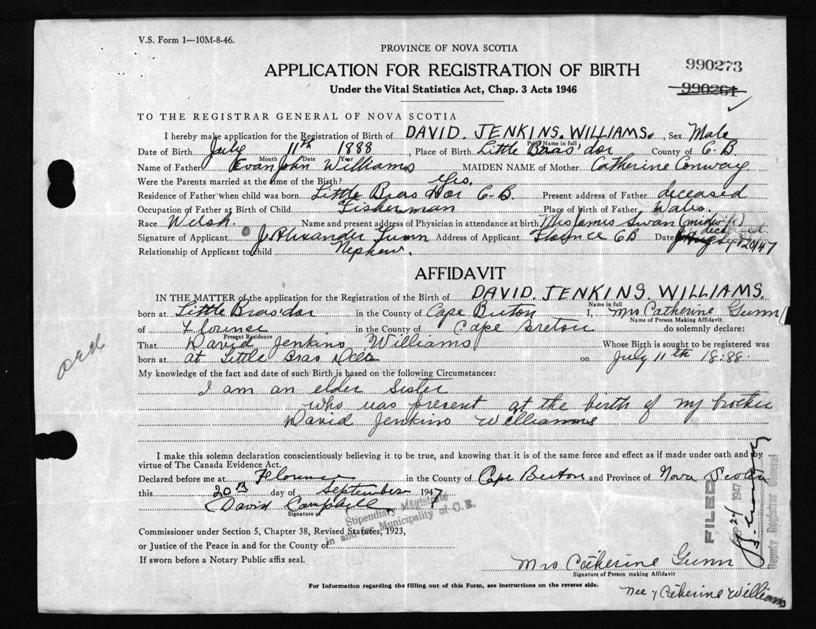 V.S. Form 1—10M-8-46.
PROVINCE OF NOVA SCOTIA
990273
APPLICATION FOR REGISTRATION OF BIRTH
990261
Under the Vital Statistics Act, Chap. 3 Acts 1946
TO THE REGISTRAR GENERAL OF NOVA SCOTIA
I hereby make application for the Registration of Birth of DAVID. JENKINS. WILLIAMS. , Sex Male
Print Name in full
Date of Birth July 11th 1888 , Place of Birth Little Bras'dor County of C.B.
Month Date Year
Name of Father Evan John Williams MAIDEN NAME of Mother Catherine Conway
Were the Parents married at the time of the Birth? Yes.
Residence of Father when child was born Little Bras Dor C.B. Present address of Father deceased
Occupation of Father at Birth of Child Fisherman Place of birth of Father Wales.
Race Welsh. Name and present address of Physician in attendance at birth Mrs James Swan (midwife)
Signature of Applicant J. Alexander Gunn Address of Applicant Florence CB Date 20/47
Relationship of Applicant to child Nephew.
AFFIDAVIT
IN THE MATTER of the application for the Registration of the Birth of DAVID. JENKINS. WILLIAMS.
born at Little Bras'dor in the County of Cape Breton I, Mrs Catherine Gunn
Name in full
Name of Person Making Affidavit
of Florence in the County of Cape Breton do solemnly declare:
Present Residence
That David Jenkins Williams Whose Birth is sought to be registered was
born at at Little Bras on July 11th 18:88.
My knowledge of the fact and date of such Birth is based on the following Circumstances:
I am an elder Sister
who was present at the birth of my brother
David Jenkins Williams
I make this solemn declaration conscientiously believing it to be true, and knowing that it is of the same force and effect as if made under oath and by
virtue of The Canada Evidence Act.
Declared before me at Florence in the County of Cape Breton and Province of Nova Scotia
this 20th day of September 1947
David Campbell
Signature of
Stipendiary Magistrate
in and for Municipality of C.B.
Commissioner under Section 5, Chapter 38, Revised Statutes, 1923,
or Justice of the Peace in and for the County of
If sworn before a Notary Public affix seal.
FILED
Sep 24 1947
Deputy Registrar General
Mrs Catherine Gunn
Signature of Person making Affidavit
For Information regarding the filling out of this Form, see instructions on the reverse side.
Nee Catherine Williams